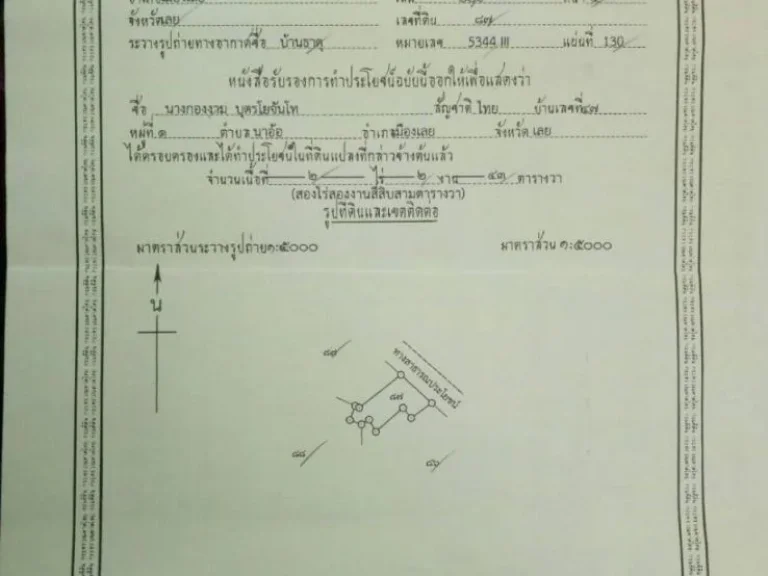 จังหวัดเลย เลขที่ดิน ๘๗
ระวางรูปถ่ายทางอากาศชื่อ บ้านธาตุ หมายเลข 5344 III แผ่นที่ 130
หนังสือรับรองการทำประโยชน์ฉบับนี้ออกให้เพื่อแสดงว่า
ชื่อ นางกองงวม บุตรโยจันโท สัญชาติ ไทย บ้านเลขที่๔๗
หมู่ที่ ๑ ตำบล นาอ้อ อำเภอเมืองเลย จังหวัด เลย
ได้ครอบครองและได้ทำประโยชน์ในที่ดินแปลงที่กล่าวข้างต้นแล้ว
จำนวนเนื้อที่ ๒ ไร่ ๒ งาน ๔๓ ตารางวา
(สองไร่สองงานสี่สิบสามตารางวา)
รูปที่ดินและเขตติดต่อ
มาตราส่วนระวางรูปถ่าย๑:๕๐๐๐ มาตราส่วน ๑:๕๐๐๐
น
ทางสาธารณประโยชน์
๘๗
๘๘
๘๖